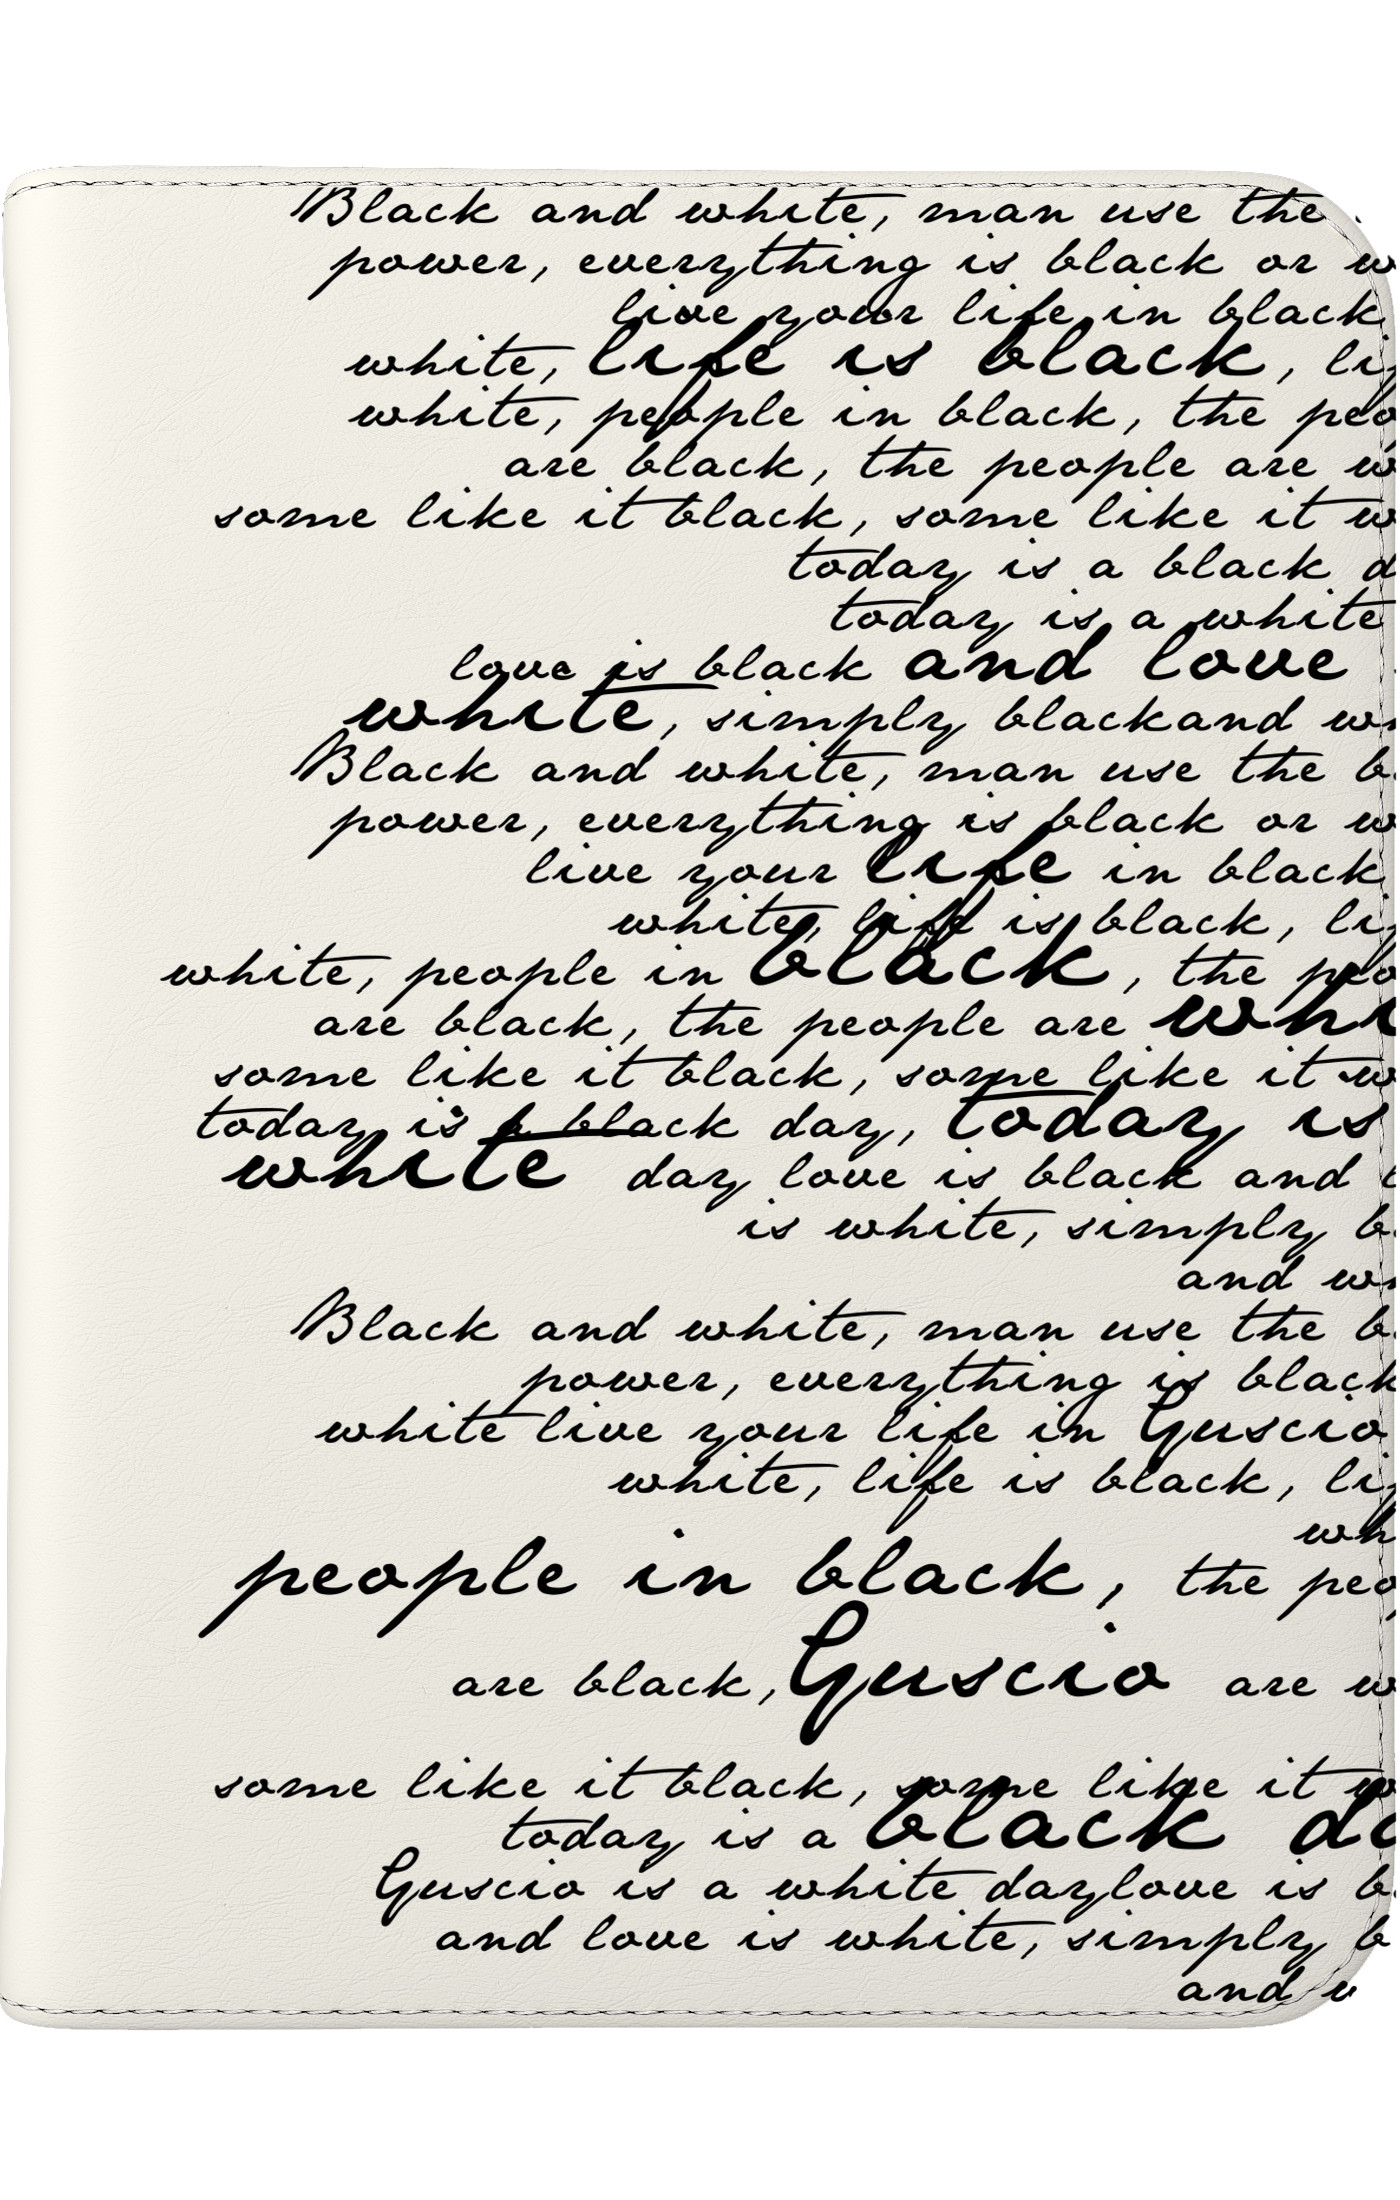 Black and white, man use the
power, everything is black or w
live your life in black
white, life is black, li
white, people in black, the peo
are black, the people are w
some like it black, some like it w
today is a black d
today is a white
love is black and love
white, simply blackand w
Black and white, man use the b
power, everything is black or w
live your life in black
white, life is black, li
white, people in black, the peo
are black, the people are whi
some like it black, some like it w
today is a black day, today is
white day love is black and
is white, simply b
and w
Black and white, man use the b
power, everything is black
white live your life in Guscio
white, life is black, li
wh
people in black, the peo
are black, Guscio are w
some like it black, some like it w
today is a black da
Guscio is a white daylove is b
and love is white, simply b
and w